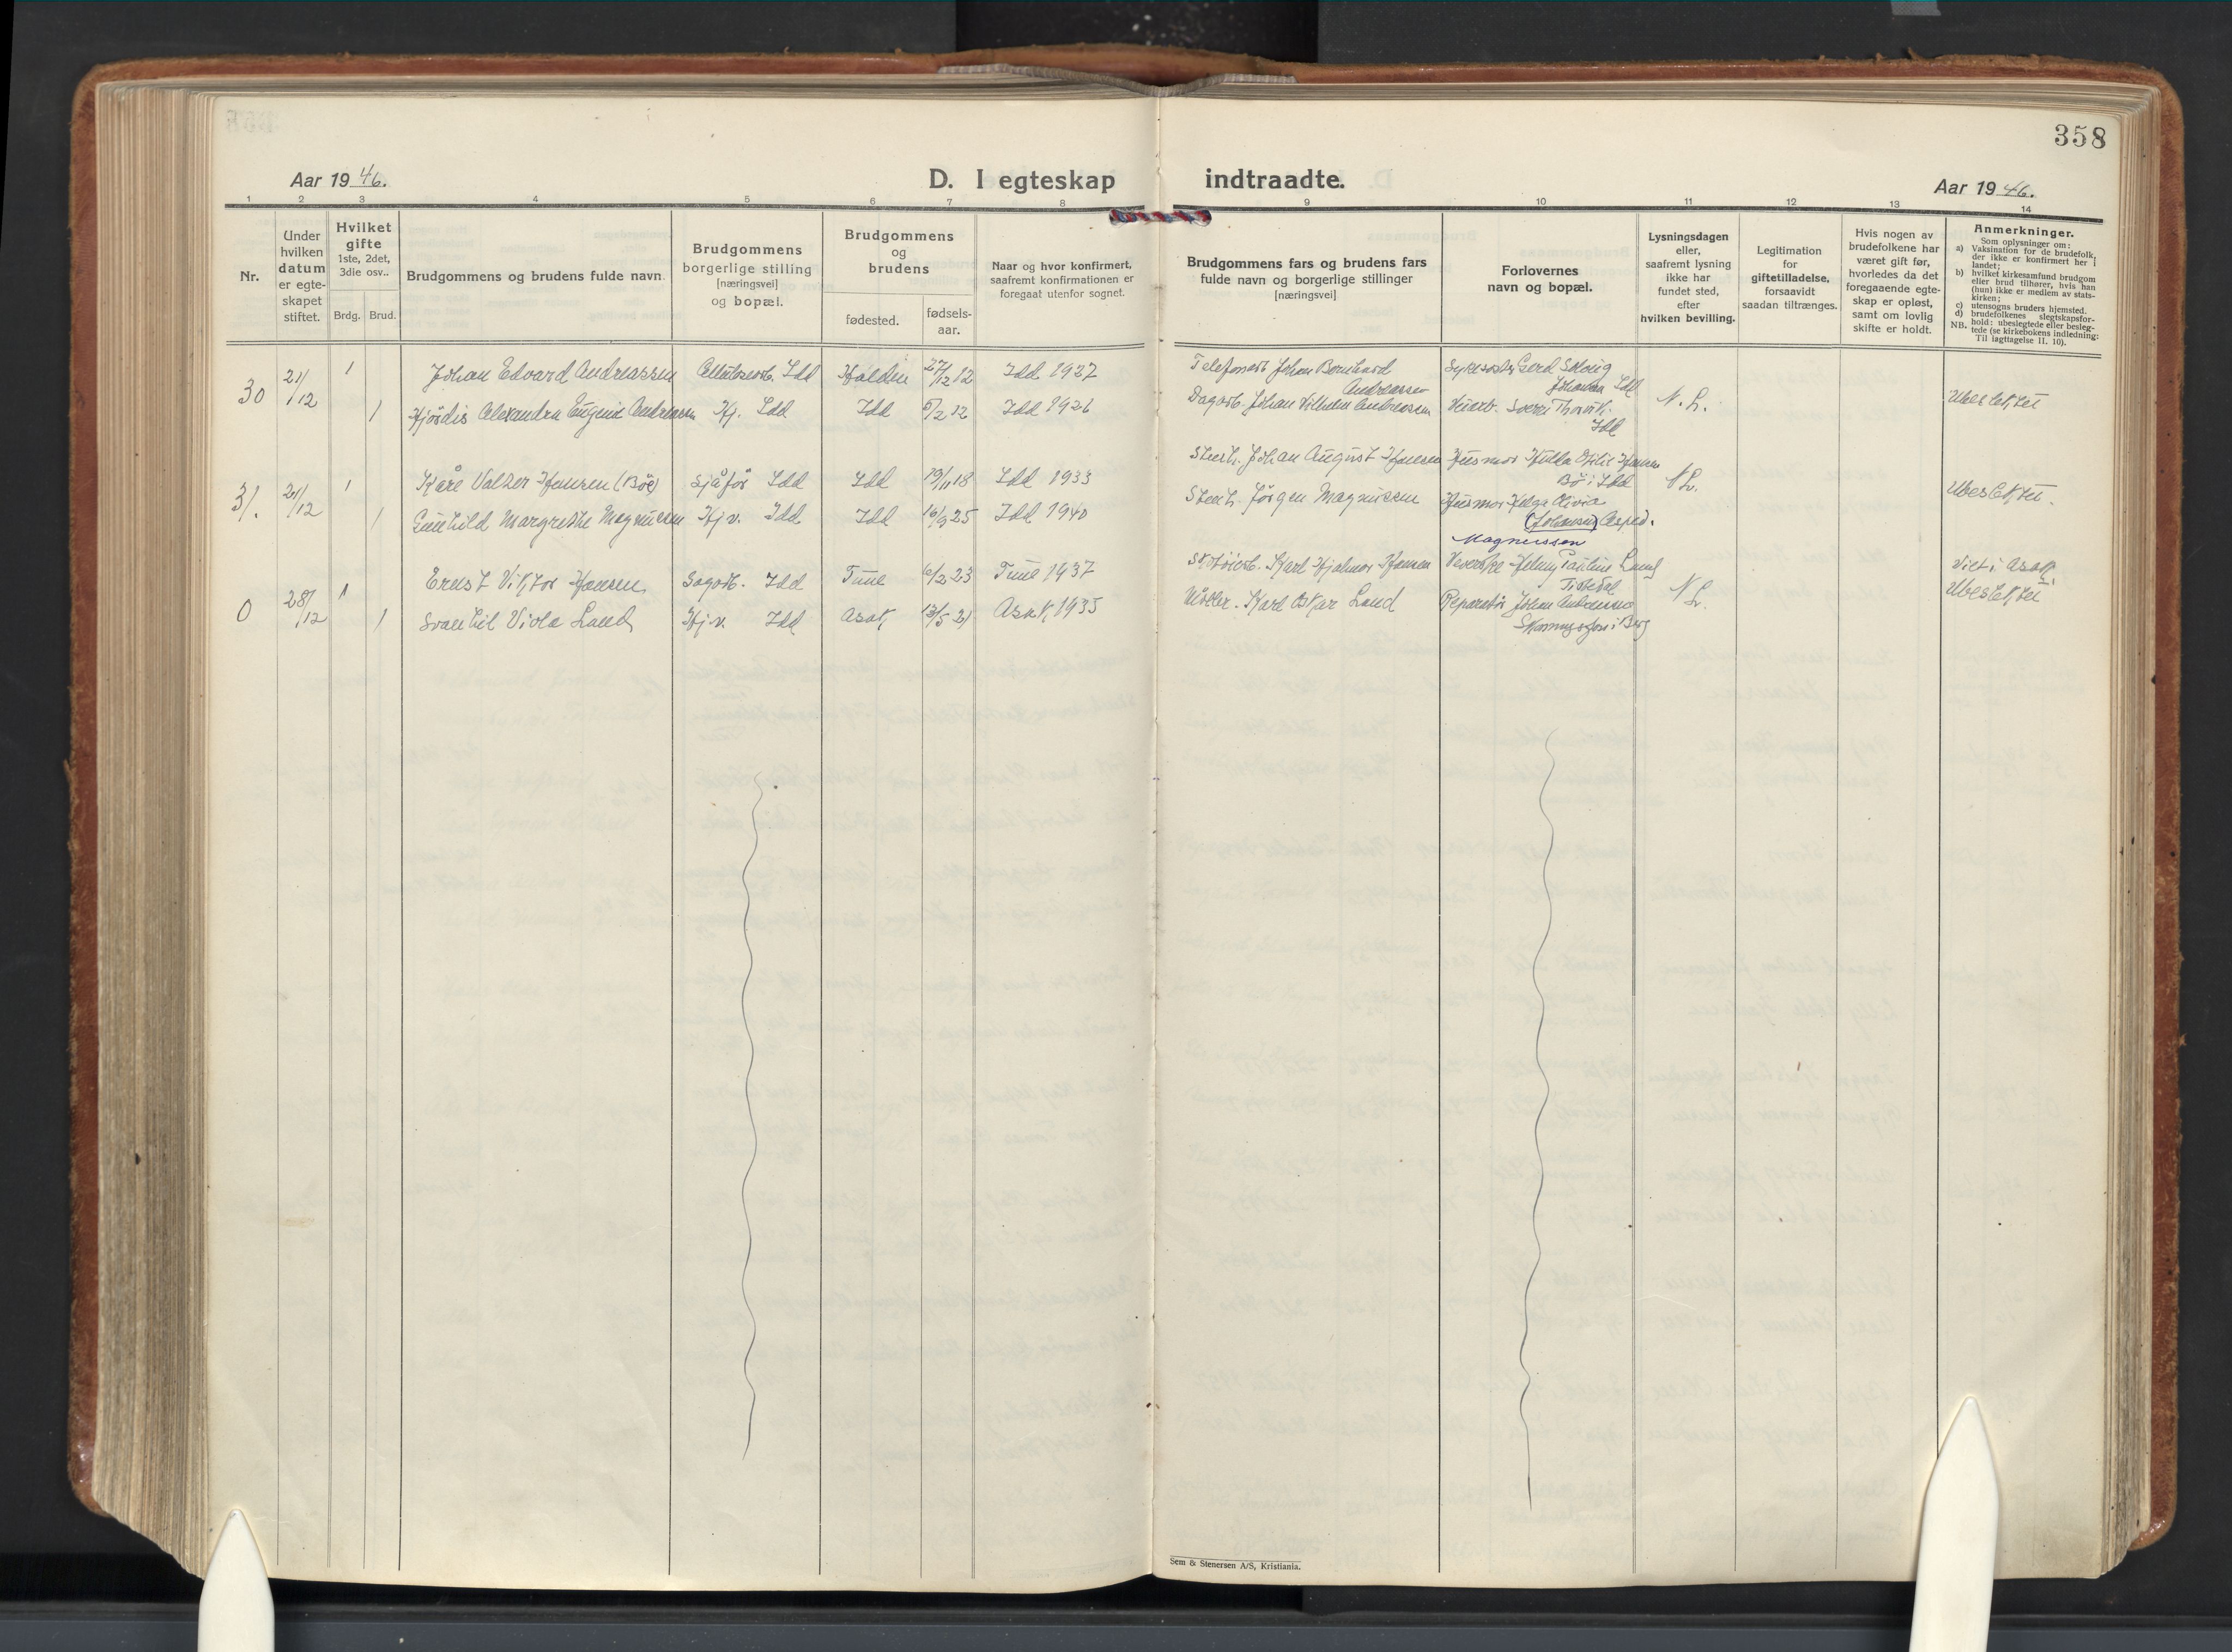 358
Aar 1946.
D. I egteskap indtraadte.
Aar 1946.
1 2 3 4 5 6 7 8 9 10 11 12 13 14
Nr.
Under
hvilken
datum
er egte-
skapet
stiftet.
Hvilket
gifte
1ste, 2det,
3die osv..
Brdg. Brud.
Brudgommens og brudens fulde navn.
Brudgommens
borgerlige stilling
[næringsvei]
og bopæl.
Brudgommens
og
brudens
fødested.
fødsels-
aar.
Naar og hvor konfirmert,
saafremt konfirmationen er
foregaat utenfor sognet.
Brudgommens fars og brudens fars
fulde navn og borgerlige stillinger
[næringsvei]
Forlovernes
navn og bopæl.
Lysningsdagen
eller,
saafremt lysning
ikke har
fundet sted,
efter
hvilken bevilling.
Legitimation
for
giftetilladelse,
forsaavidt
saadan tiltrænges.
Hvis nogen av
brudefolkene har
været gift før,
hvorledes da det
foregaaende egte-
skap er opløst,
samt om lovlig
skifte er holdt.
Anmerkninger.
Som oplysninger om:
a) Vaksination for de brudefolk,
der ikke er konfirmert her i
landet;
b) hvilket kirkesamfund brudgom
eller brud tilhører, hvis han
(hun) ikke er medlem av stats-
kirken;
c) utensogns bruders hjemsted.
d) brudefolkenes slegtskapsfor-
hold: ubeslegtede eller besleg-
NB. tede (se kirkebokens indledning:
Til Iagttagelse II. 10).
30 21/12 1 Johan Edvard Andreassen Idd Halden 27/12 12 Idd 1927 Johan Bernhard
Andreassen
Gerd Solveig
Johansen Idd
1 Hjørdis Alexandra Eugenie Andreassen Hj. Idd Idd 5/2 12 Idd 1926 Johan Vilhelm Andreassen Thorvik.
Idd
N.L. Ubeslektet
31. 21/12 1 Kåre Valter Hansen (Bøe) Sjåfør Idd Idd 19/11 18 Idd 1933 Johan August Hansen Husmor Hulda Otilie Hansen
Bø i Idd
1 Gunhild Margrethe Magnussen Hjv. Idd Idd 16/9 25 Idd 1940 Jørgen Magnussen Husmor Helga Olivia
(Johansen) Asped.
Magnussen
N.L. Ubeslektet.
0 28/12 1 Ernst Viktor Hansen Sagarb. Idd Tune 6/2 23 Tune 1937 Karl Hjalmar Hansen Veverske Pauline Lund
Tistedal
1 Svanhil Viola Lund Hjv. Idd Asak 13/5 21 Asak 1935 Møller. Karl Oskar Lund Reparatør Johan
i Berg
N.L. Viet i Asak
Ubeslektet
Sem & Stenersen A/S, Kristiania.